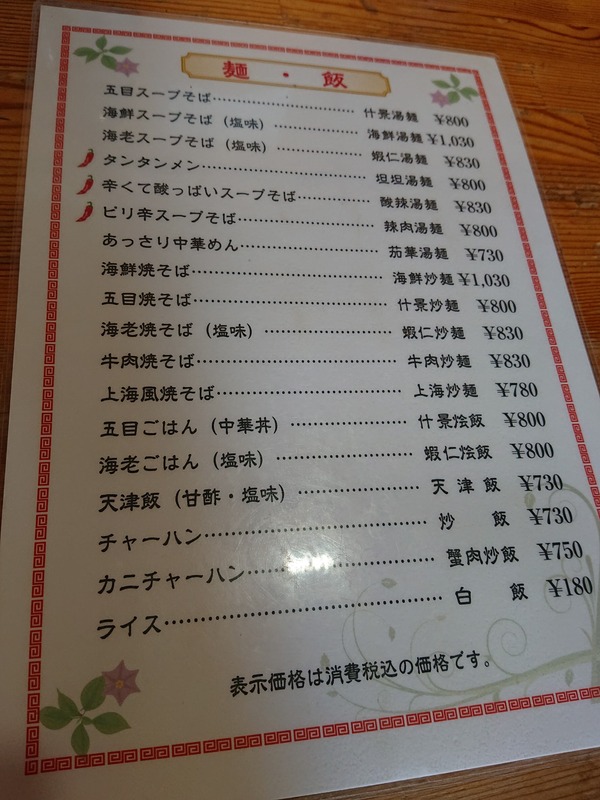 麺・飯
五目スープそば 什景湯麺 ¥800
海鮮スープそば（塩味） 海鮮湯麺 ¥1,030
海老スープそば（塩味） 蝦仁湯麺 ¥830
タンタンメン 坦坦湯麺 ¥800
辛くて酸っぱいスープそば 酸辣湯麺 ¥830
ピリ辛スープそば 辣肉湯麺 ¥800
あっさり中華めん 茄華湯麺 ¥730
海鮮焼そば 海鮮炒麺 ¥1,030
五目焼そば 什景炒麺 ¥800
海老焼そば（塩味） 蝦仁炒麺 ¥830
牛肉焼そば 牛肉炒麺 ¥830
上海風焼そば 上海炒麺 ¥780
五目ごはん（中華丼） 什景烩飯 ¥800
海老ごはん（塩味） 蝦仁烩飯 ¥800
天津飯（甘酢・塩味） 天津飯 ¥730
チャーハン 炒飯 ¥730
カニチャーハン 蟹肉炒飯 ¥750
ライス 白飯 ¥180
表示価格は消費税込の価格です。